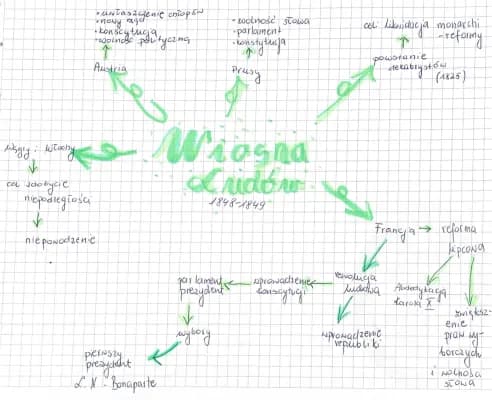 • uwłaszczenie chłopów
• nowy rząd
• konstytucja
• wolność polityczną
Austria
• wolność słowa
• parlament
• konstytucja
Prusy
cel likwidacja monarchi
- reformy
powstanie
dekabrystów
(1825)
Wiosna
Ludów
1848-1849
Węgry i Włochy
cel zdobycie
niepodległości
niepowodzenie
Francja → reforma
lipcowa
Abdykacja
Karola X
zwiększ-
enie
praw wy-
borczych
i wolności
słowa
rewolucja
lutowa
wprowadzenie
republiki
wprowadzenie
konstytucji
parlament
prezydent
wybory
pierwszy
prezydent
L. N. Bonaparte